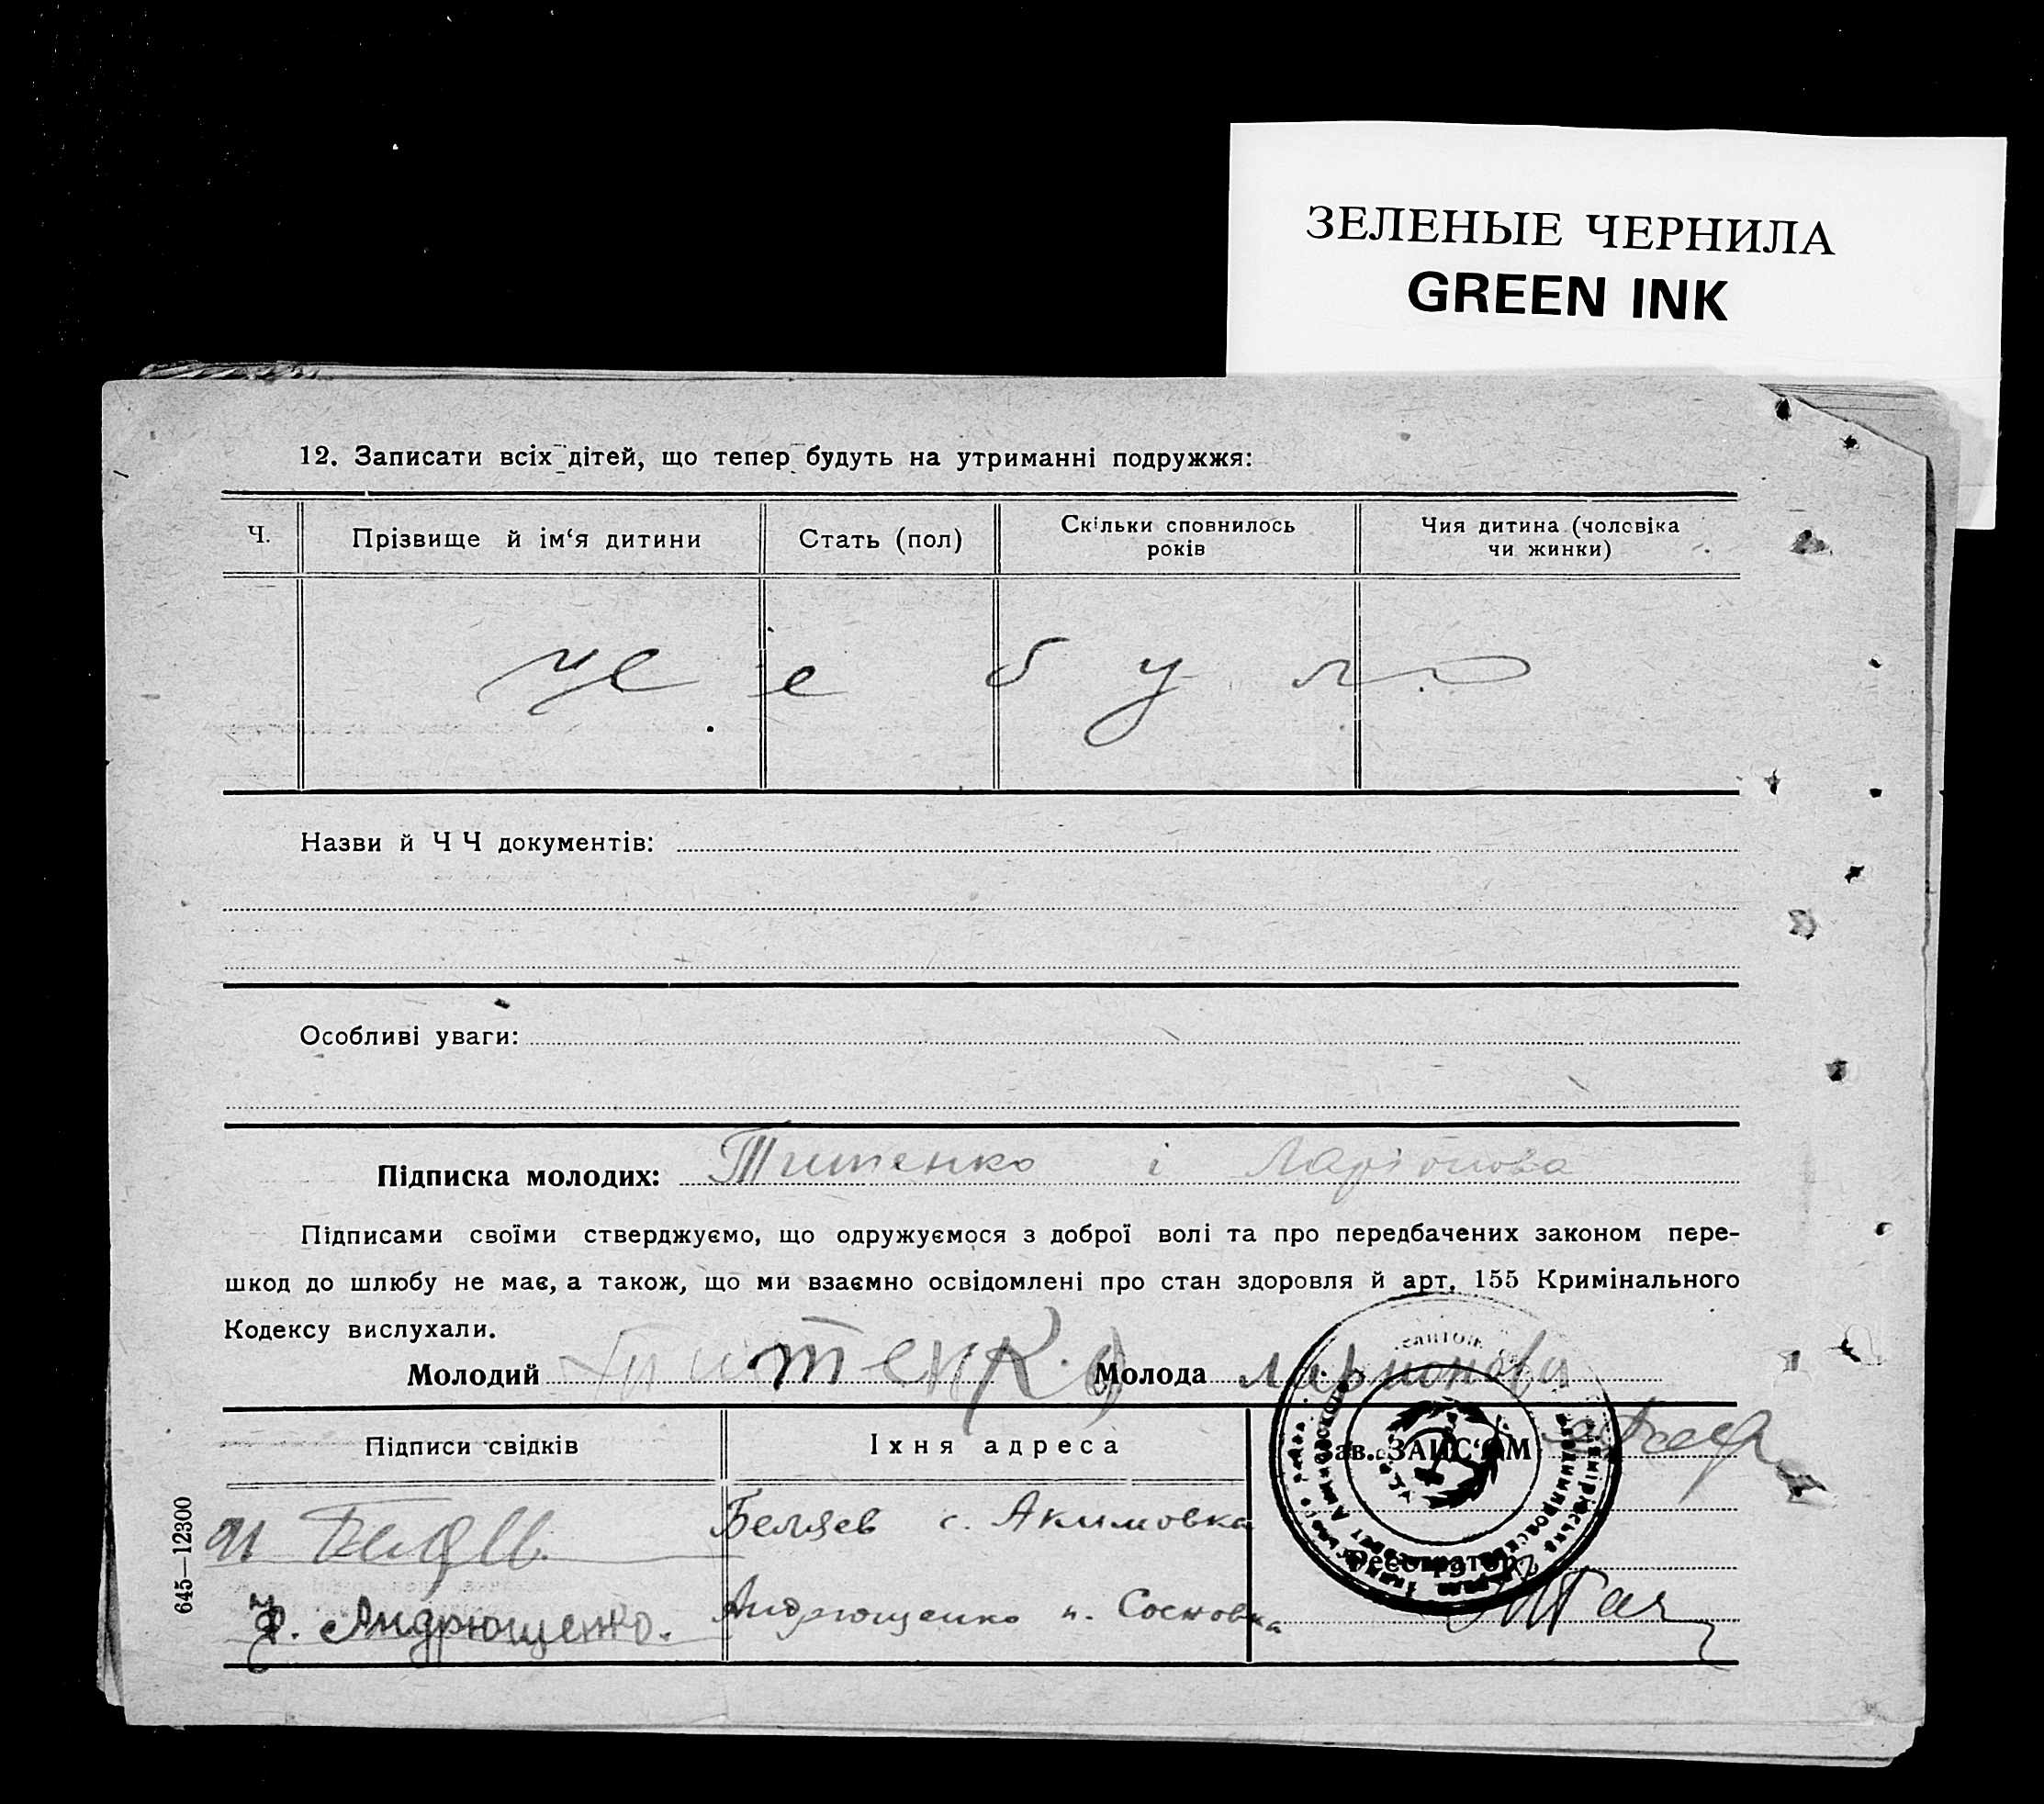 ЗЕЛЕНЫЕ ЧЕРНИЛА
GREEN INK
12. Записати всіх дітей, що тепер будуть на утриманні подружжя:
Ч. Прізвище й ім‘я дитини Стать (пол) Скільки сповнилось років Чия дитина (чоловіка чи жинки)
не було
Назви й ЧЧ документів:
Особливі уваги:
Підписка молодих: Титенко і Ларіонова
Підписами своїми стверджуємо, що одружуємося з доброї волі та про передбачених законом пере-
шкод до шлюбу не має, а також, що ми взаємно освідомлені про стан здоровля й арт. 155 Кримінального
Кодексу вислухали.
Молодий Титенко Молода Ларионова
Підписи свідків Їхня адреса Зав. ЗАПС‘ОМ
Беляев с. Акимовка
Реєстратор
Ф. Андрющенко. Андрющенко п. Сосновка
645—12300